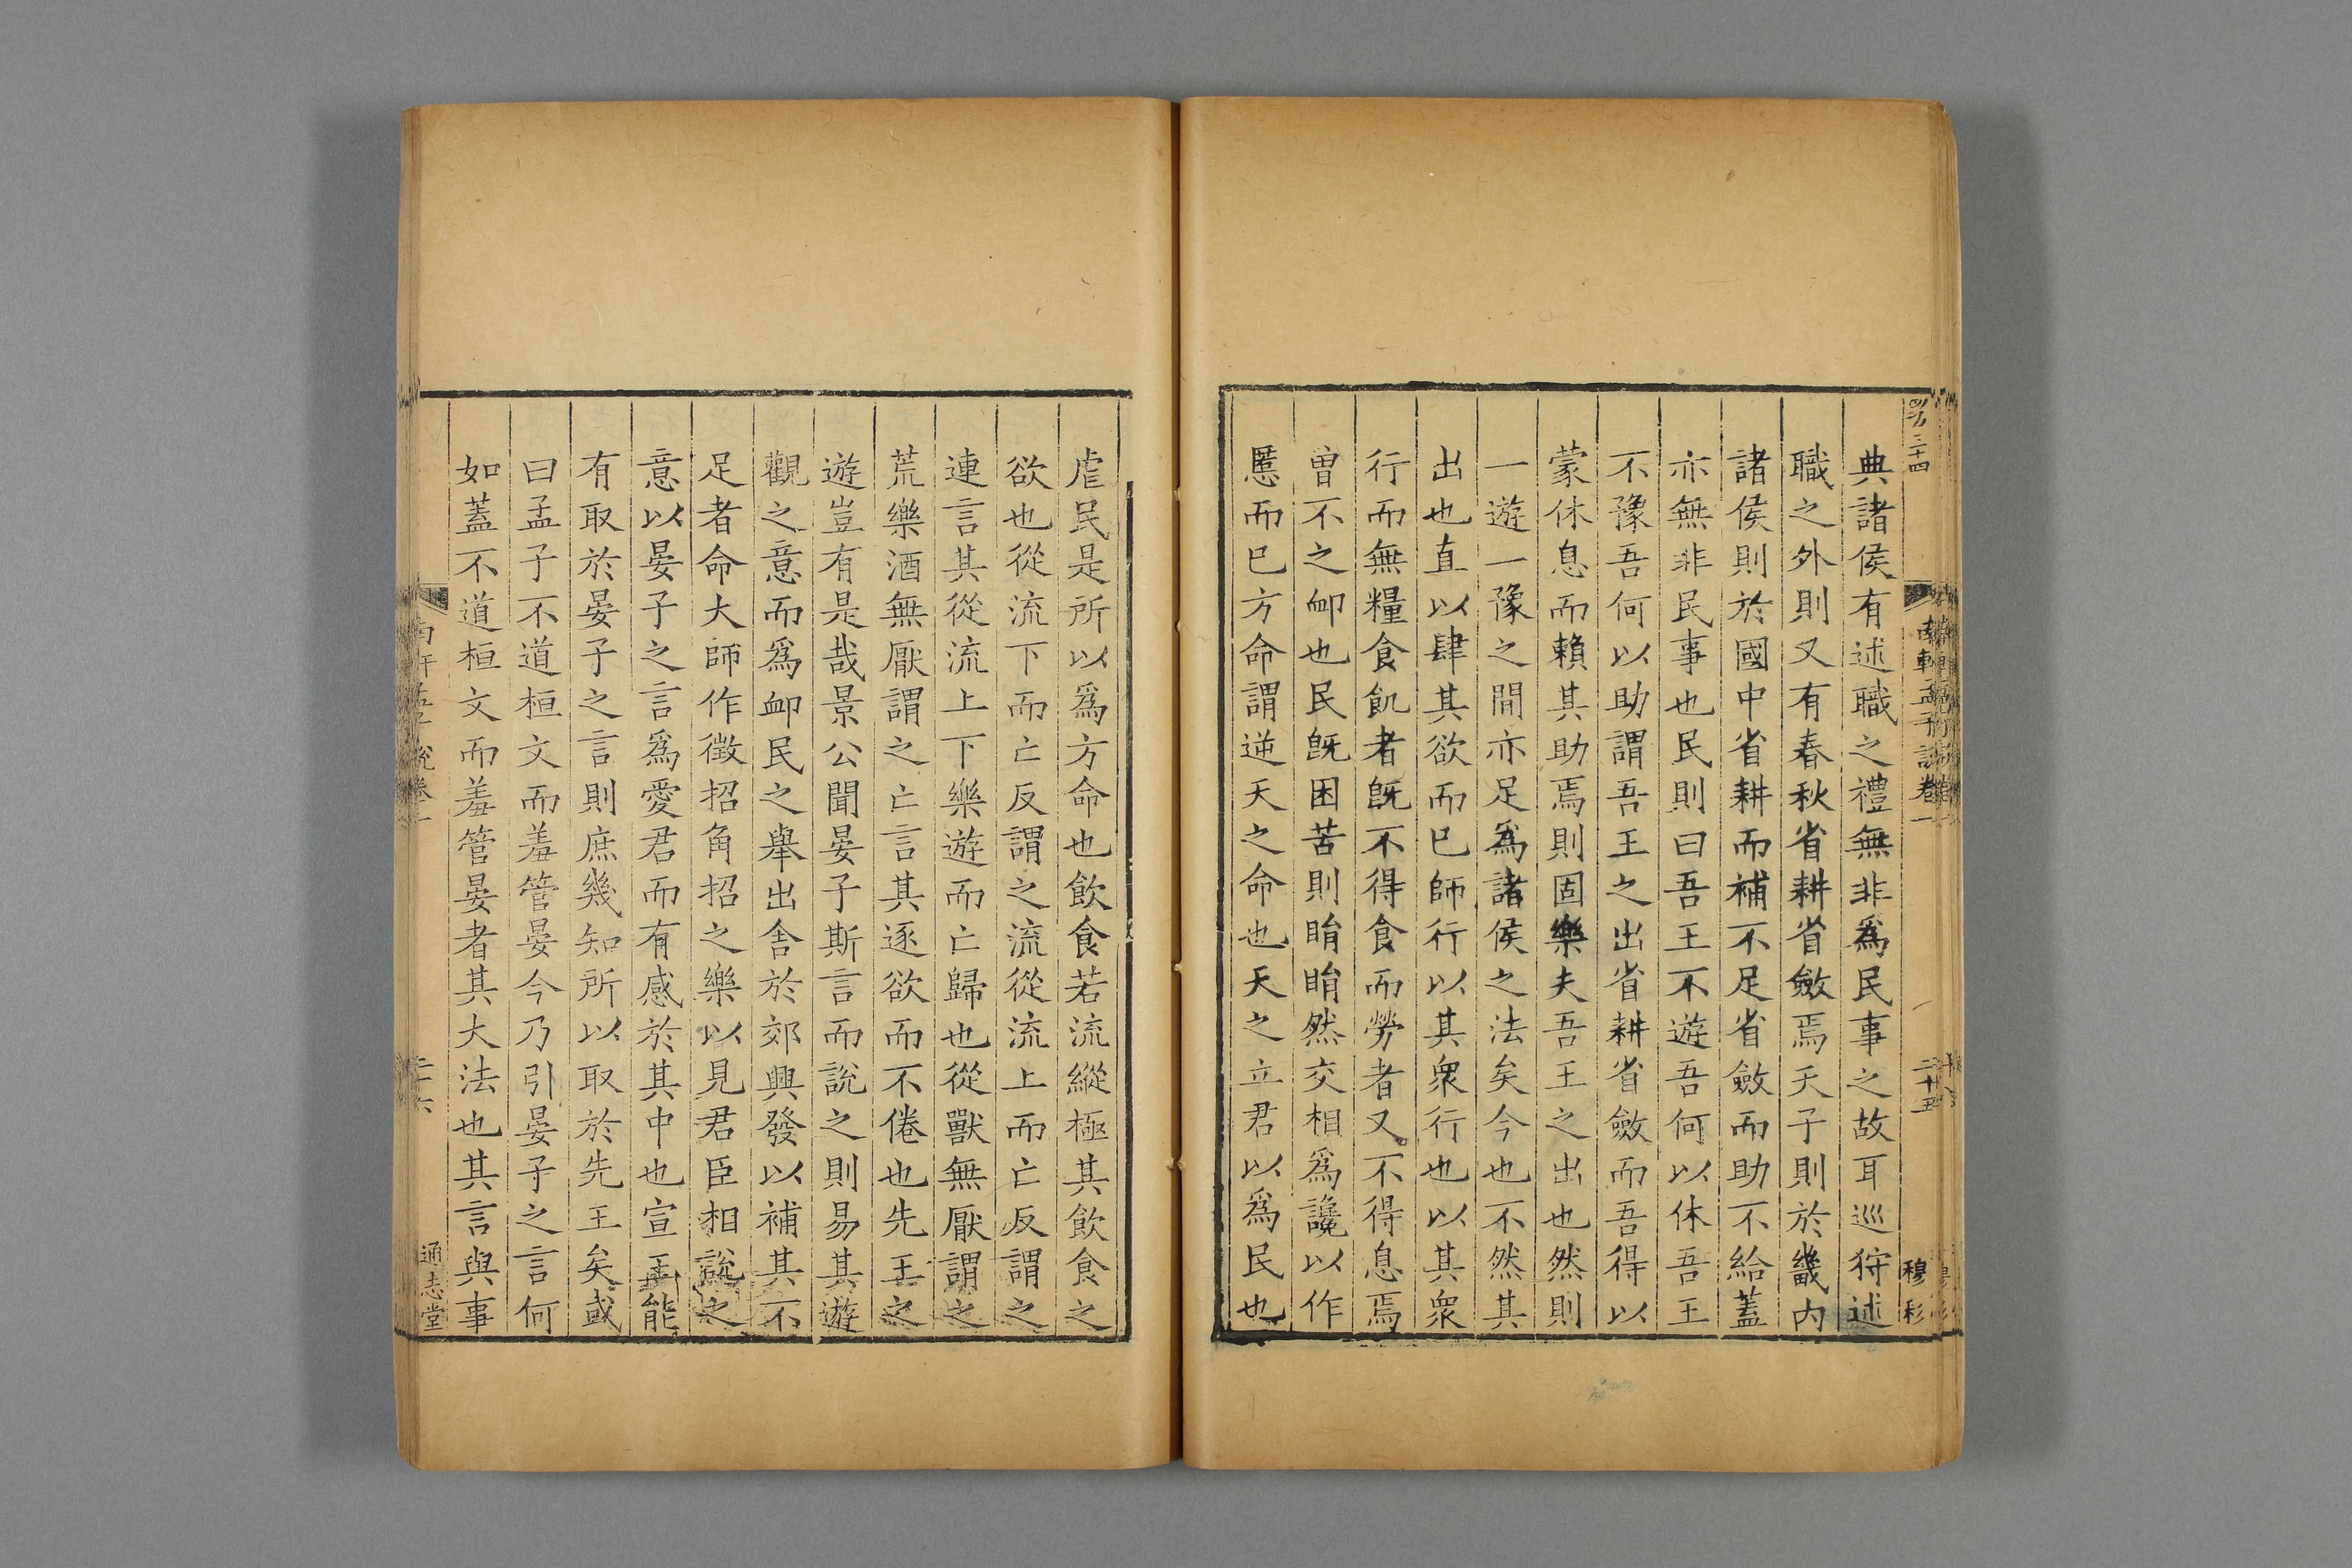 典諸侯有述職之禮無非爲民事之故耳巡狩述
職之外則又有春秋省耕省斂焉天子則於畿内
諸侯則於國中省耕而補不足省斂而助不給蓋
亦無非民事也民則曰吾王不遊吾何以休吾王
不豫吾何以助謂吾王之出省耕省斂而吾得以
蒙休息而賴其助焉則固樂夫吾王之出也然則
一遊一豫之間亦足爲諸侯之法矣今也不然其
出也直以肆其欲而已師行以其衆行也以其衆
行而無糧食飢者旣不得食而勞者又不得息焉
曾不之卹也民旣困苦則睊睊然交相爲讒以作
慝而已方命謂逆天之命也天之立君以爲民也
南軒孟子說卷一
二十五
穆彩
虐民是所以爲方命也飲食若流縱極其飲食之
欲也從流下而亡反謂之流從流上而亡反謂之
連言其從流上下樂遊而亡歸也從獸無厭謂之
荒樂酒無厭謂之亡言其逐欲而不倦也先王之
遊豈有是哉景公聞晏子斯言而說之則易其遊
觀之意而爲卹民之舉出舍於郊興發以補其不
足者命大師作徵招角招之樂以見君臣相說之
意以晏子之言爲愛君而有感於其中也宣王能
有取於晏子之言則庶幾知所以取於先王矣或
曰孟子不道桓文而羞管晏今乃引晏子之言何
如蓋不道桓文而羞管晏者其大法也其言與事
通志堂